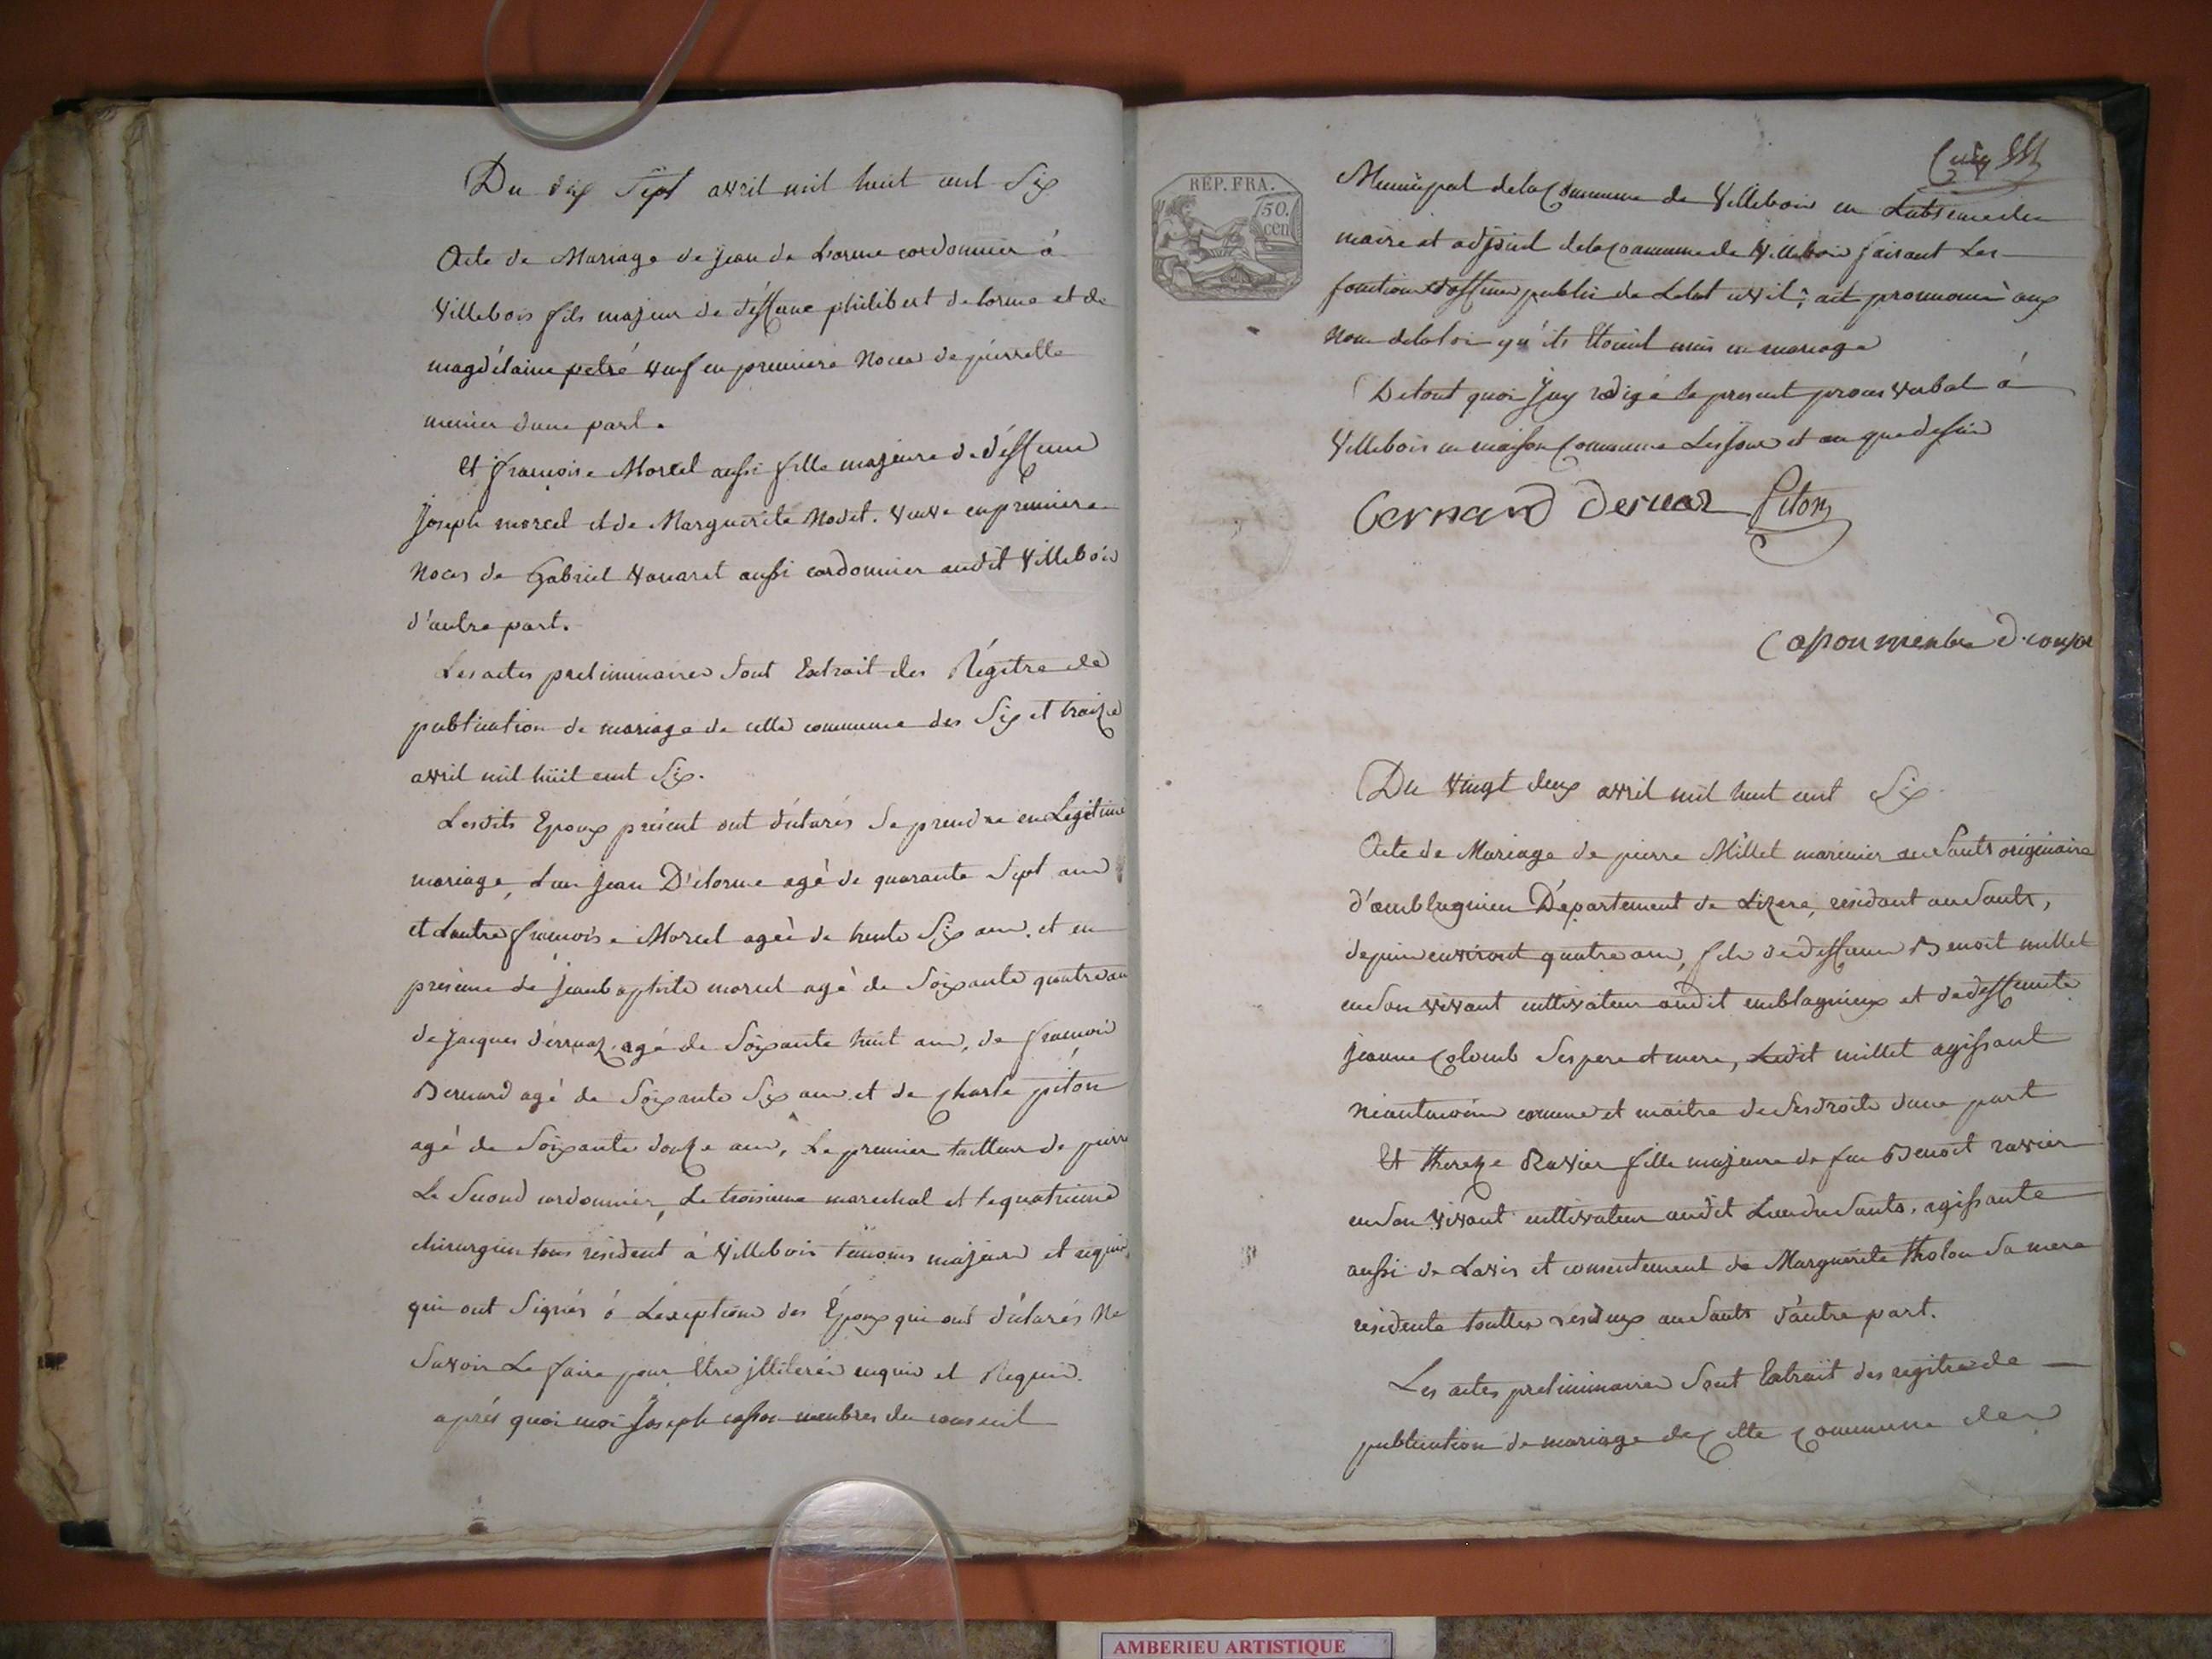 Du dix Sept avril mil huit cent Six
Acte de Mariage de jean de Lorme cordonnier à
Villebois fils majeur de déffunc philibert de lorme et de
magdélaine petré veuf en premiere Noces de pierrette
meunier dune part.
Et francoise Morcel aussi fille majeure de déffunc
Joseph morcel et de Marguerite Nodet. veuve en premiere
Noces de Gabriel Vouaret aussi cordonnier audit Villebois
d'autre part.
Les actes preliminaires Sont Extrait des Régitre de
publication de mariage de cette commune des Six et traize
avril mil hüit cent Six.
Lesdits Epoux présent ont déclarés Se prendre en Legitime
mariage, Lun jean D'elorme agé de quarante Sept ans
et Lautre francoise Morcel ageé de trente Six ans. et en
présence de jeanbaptiste morcel agé de Soixante quatre ans
de jacques dérruaz agé de Soixante huit ans, de francois
Bernard agé de Soixante Six ans et de charle piton
agé de Soixante douze ans, Le premier tailleur de pierre
Le Second cordonnier, Le troisieme marechal et le quatrieme
chirurgien tous resident à Villebois temoins majeurs et requis
qui ont Signés á Lexeption des Époux qui ont déclarés Ne
Savoir Le faire pour Etre jlliterés enquis et Requis.
aprés quoi moi Joseph casson membres du conseil
REP. FRA.
50.
cen
Municipal de la Commune de Villebois en Labsence des
maire et adjoint de la Commune de Villebois faisant Les
fonctions d'officier public de Letat civil, ait prononcé aux
Nom de la loi qu'ils Etoient unis en mariage
De tout quoi Jay rédigé le present proces verbal à
Villebois en maison Commune Les jour et an que dessus
Bernard Deruaz Piton
Casson membre d. conseil
Du Vingt deux avril mil huit cent Six
Acte de Mariage de pierre Millet marinier au Sault originaire
d'amblagnieu Département de Lizere, residant au Sault,
depuis environt quatre ans, fils de deffunc Benoit millet
en Son vivant cultivateur audit emblagnieux et de deffuncte
jeanne Colomb Ses pere et mere, Ledit millet agissant
neantmoins comme et maitre de Ses droits dune part
Et thereze Ravier fille majeure de feu Benoit ravier
en Son Vivant cultivateur audit Lieu du Sault, agissante
aussi de Lavis et consentement de Marguerite tholon Sa mere
residente touttes Les deux au Sault d'autre part.
Les actes preliminaires Sont Extrait des regitre de
publication de mariage de Cette Commune des
AMBERIEU ARTISTIQUE